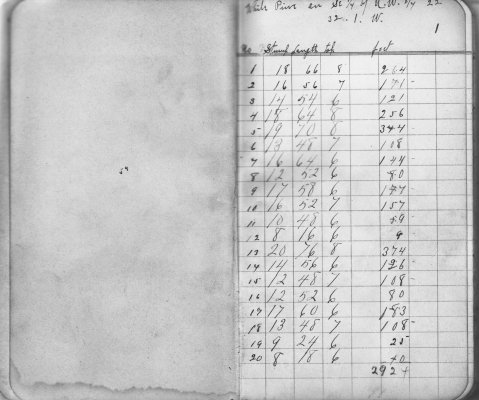 White Pine on SE 1/4 of N.W. 1/4 22
32. 1. W.
1
No. Stump Length top feet
1 18 66 8 264
2 16 56 7 171
3 14 54 6 121
4 18 64 8 256
5 19 70 8 344
6 13 48 7 108
7 16 64 6 144
8 12 52 6 80
9 17 58 6 177
10 16 52 7 157
11 10 48 6 59
12 8 16 6 9
13 20 76 8 374
14 14 56 6 126
15 12 48 7 108
16 12 52 6 80
17 17 60 6 183
18 13 48 7 108
19 9 24 6 25
20 8 18 6